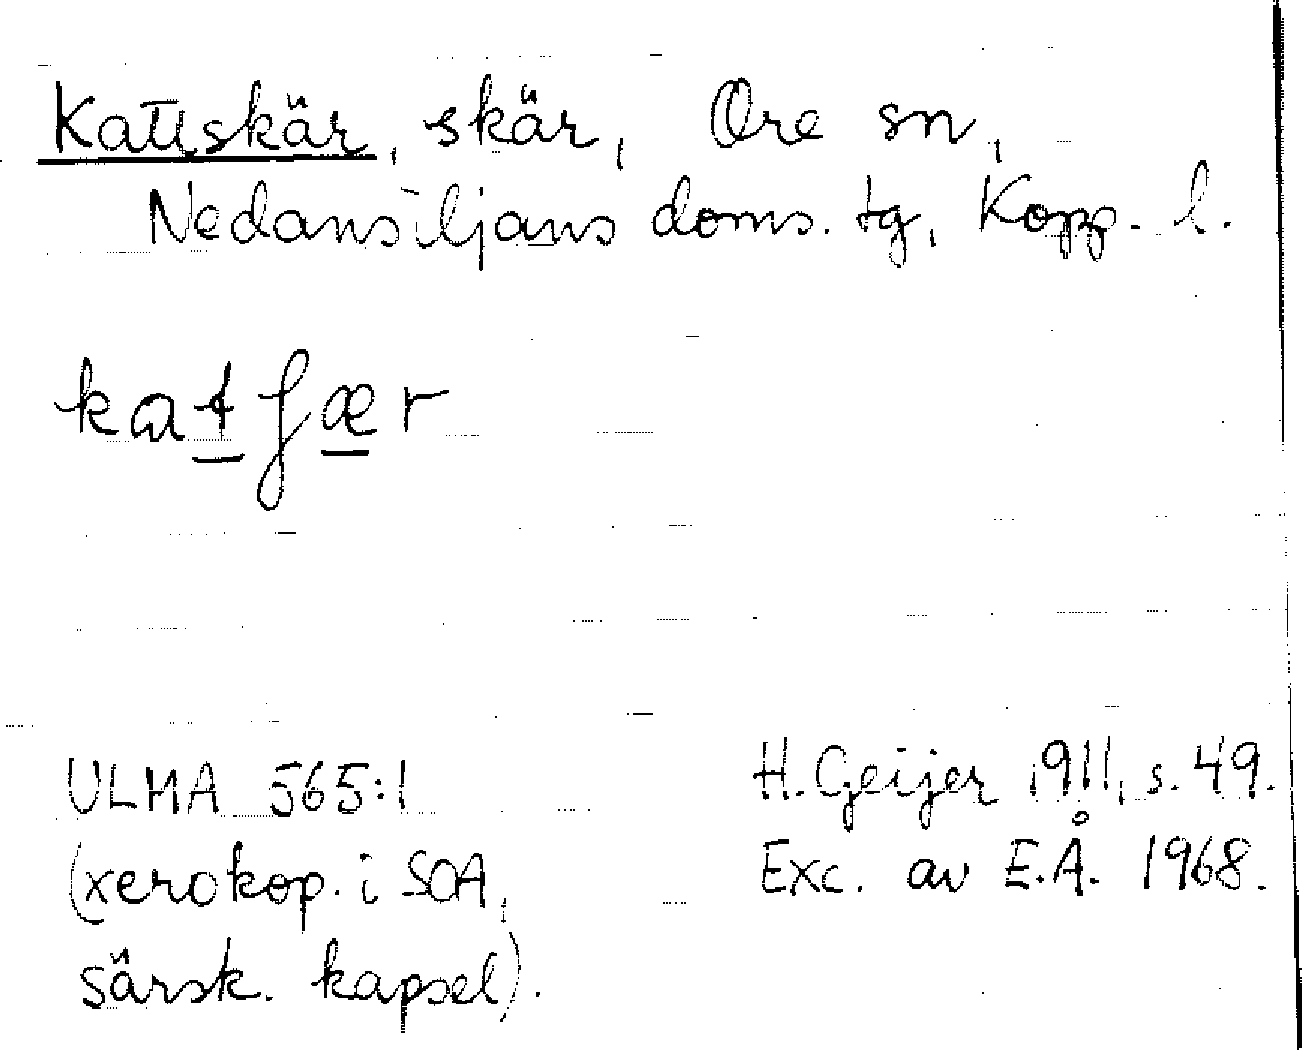 Kattskär, skär, Ore sn,
Nedansiljans doms. tg, Kopp. l.
katʃær
ULMA 565:1
H. Geijer 1911, s. 49.
(xerokop. i SOA,
Exc. av E.Å. 1968.
särsk. kapsel).